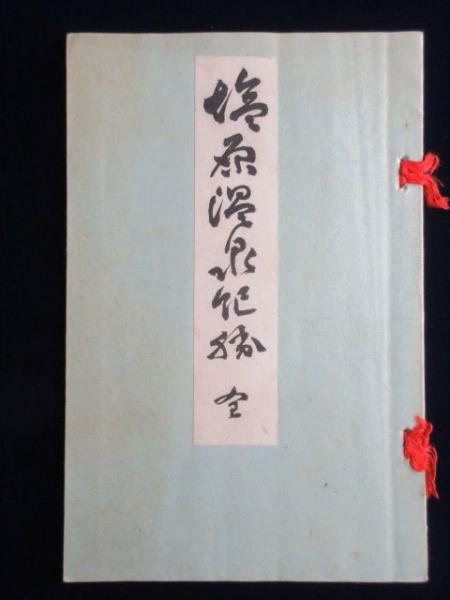 塩原温泉紀勝 全